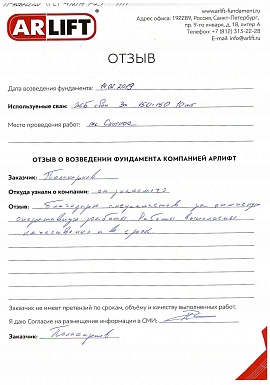 ARLIFT
www.arlift-fundament.ru
Адрес офиса: 192289, Россия, Санкт-Петербург,
пр. 9-го января, д. 3В, литер А
Телефон: +7 (812) 313-22-28
E-mail: info@arlift.ru
ОТЗЫВ
Дата возведения фундамента:
Используемые сваи: 150×150 10шт
Место проведения работ:
ОТЗЫВ О ВОЗВЕДЕНИИ ФУНДАМЕНТА КОМПАНИЕЙ АРЛИФТ
Заказчик:
Откуда узнали о компании:
Отзыв: Благодарю специалистов за отличную
оперативную работу. Работы выполнены
качественно и в срок
Заказчик не имеет претензий по срокам, объёму и качеству выполненных работ.
Я даю Согласие на размещение информации в СМИ:
Заказчик: